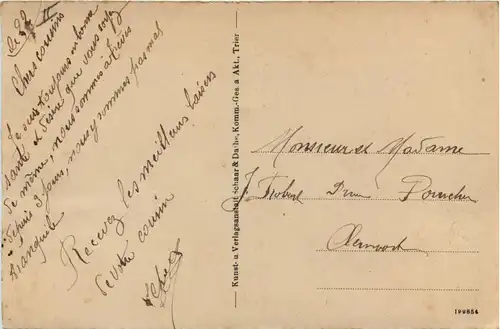 Chers cousins
Je suis toujours en bonne
santé et désire que vous soyez
de même, nous sommes à Trèves
depuis 3 jours, nous y sommes pas mal
tranquile
Recevez les meilleurs baisers
de votre cousin
Kunst- u. Verlagsanstalt Schaar & Dathe, Komm.-Ges. a. Akt., Trier
Monsieur et Madame
J.
199854